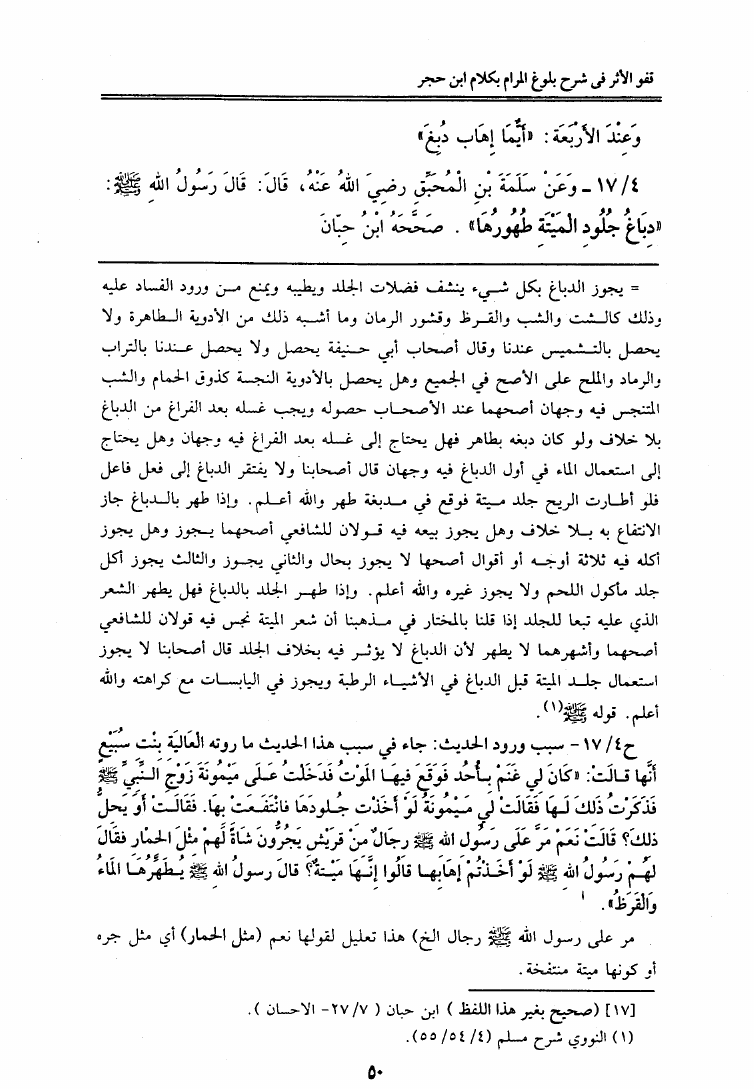 قفو الأثر فى شرح بلوغ المرام بكلام ابن حجر
وَعِنْدَ الأَرْبَعَة: «أَيُّمَا إِهَاب دُبِغَ»
١٧/٤ - وَعَنْ سَلَمَةَ بْنِ الْمُحَبِّقِ رضيَ اللهُ عَنْهُ، قَالَ: قَالَ رَسُولُ اللهِ ﷺ:
«دِبَاغُ جُلُودِ الْمَيْتَةِ طُهُورُهَا». صَحَّحَهُ ابْنُ حِبّانَ
= يجوز الدباغ بكل شيء ينشف فضلات الجلد ويطيبه ويمنع من ورود الفساد عليه
وذلك كالشت والشب والقرظ وقشور الرمان وما أشبه ذلك من الأدوية الطاهرة ولا
يحصل بالتشميس عندنا وقال أصحاب أبي حنيفة يحصل ولا يحصل عندنا بالتراب
والرماد والملح على الأصح في الجميع وهل يحصل بالأدوية النجسة كذوق الحمام والشب
المتنجس فيه وجهان أصحهما عند الأصحاب حصوله ويجب غسله بعد الفراغ من الدباغ
بلا خلاف ولو كان دبغه بطاهر فهل يحتاج إلى غسله بعد الفراغ فيه وجهان وهل يحتاج
إلى استعمال الماء في أول الدباغ فيه وجهان قال أصحابنا ولا يفتقر الدباغ إلى فعل فاعل
فلو أطارت الريح جلد ميتة فوقع في مدبغة طهر والله أعلم. وإذا طهر بالدباغ جاز
الانتفاع به بلا خلاف وهل يجوز بيعه فيه قولان للشافعي أصحهما يجوز وهل يجوز
أكله فيه ثلاثة أوجه أو أقوال أصحها لا يجوز بحال والثاني يجوز والثالث يجوز أكل
جلد مأكول اللحم ولا يجوز غيره والله أعلم. وإذا طهر الجلد بالدباغ فهل يطهر الشعر
الذي عليه تبعا للجلد إذا قلنا بالمختار في مذهبنا أن شعر الميتة نجس فيه قولان للشافعي
أصحهما وأشهرهما لا يطهر لأن الدباغ لا يؤثر فيه بخلاف الجلد قال أصحابنا لا يجوز
استعمال جلد الميتة قبل الدباغ في الأشياء الرطبة ويجوز في اليابسات مع كراهته والله
أعلم. قوله ﷺ(١).
ح١٧/٤- سبب ورود الحديث: جاء في سبب هذا الحديث ما روته الْعَالِيَة بِنْتِ سُبَيْعٍ
أَنَّها قالَتْ: «كَانَ لي غَنَم بأُحُد فَوَقَعَ فيهَا الْمَوْتُ فَدَخَلْتُ عَلَى مَيْمُونَةَ زَوْجِ النَّبِيِّ ﷺ
فَذَكَرْتُ ذَلكَ لَها فَقَالَتْ لي مَيْمُونَةُ لَوْ أَخَذْت جُلُودَهَا فَانْتَفَعت بهَا. فَقَالَتْ أَوَ يَحلُّ
ذلكَ؟ قَالَتْ نَعَمْ مَرَّ عَلَى رَسُول الله ﷺ رجَالٌ منْ قُرَيْش يَجُرُّونَ شَاةً لَهمْ مثْلَ الحْمَار فقَالَ
لَهُمْ رَسُولُ الله ﷺ لَوْ أَخَذْتُمْ إهَابَها قَالُوا إِنَّها مَيْتةٌ؟ قالَ رسولُ اللهِ ﷺ يُطَهِّرُهَا الْمَاءُ
والْقَرَظُ».
مر على رسول الله ﷺ رجال الخ) هذا تعليل لقولها نعم (مثل الحمار) أي مثل جره
أو كونها ميتة منتفخة.
[١٧] (صحيح بغير هذا اللفظ) ابن حبان (٢٧/٧- الاحسان).
(١) النووي شرح مسلم (٥٥/٥٤/٤).
٥٠